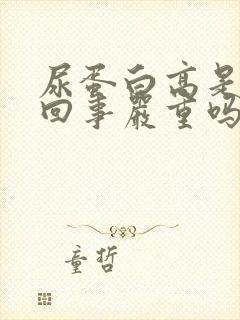 尿蛋白高是
回事严重吗
童哲